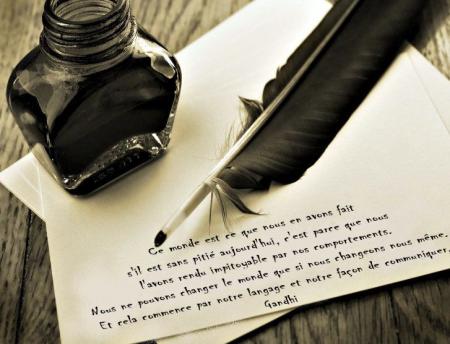 Ce monde est ce que nous en avons fait
s'il est sans pitié aujourd'hui, c'est parce que nous
l'avons rendu impitoyable par nos comportements.
Nous ne pouvons changer le monde que si nous changeons nous même.
Et cela commence par notre langage et notre façon de communiquer.
Gandhi